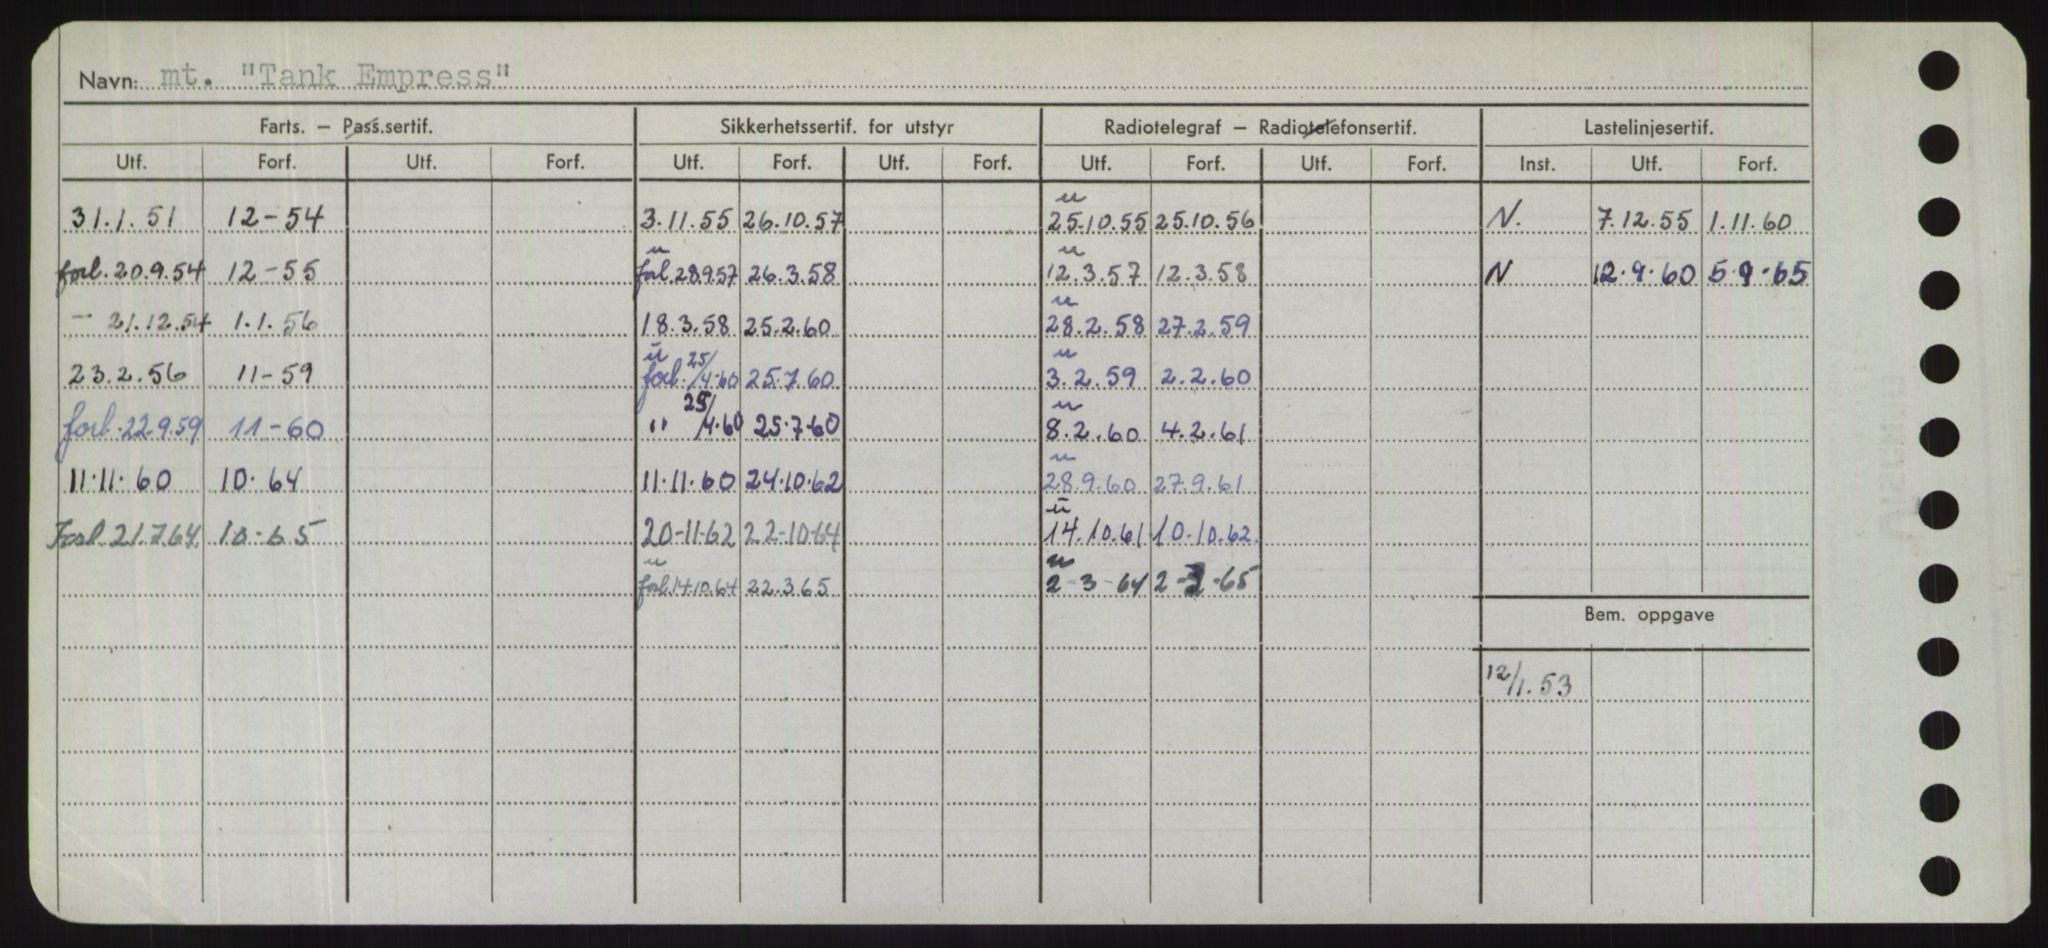 Navn: mt. "Tank Empress"
Farts. – Pass.sertif. Sikkerhetssertif. for utstyr Radiotelegraf – Radiotelefonsertif. Lastelinjesertif.
Utf. Forf. Utf. Forf. Utf. Forf. Utf. Forf. Utf. Forf. Utf. Forf. Inst. Utf. Forf.
u
31.1.51 12-54 3.11.55 26.10.57 25.10.55 25.10.56 N. 7.12.55 1.11.60
u u
forl. 20.9.54 12-55 forl. 28.9.57 26.3.58 12.3.57 12.3.58 N 12.9.60 5.9.65
u
- 21.12.54 1.1.56 18.3.58 25.2.60 28.2.58 27.2.59
u u
23.2.56 11-59 forl. 25/4.60 25.7.60 3.2.59 2.2.60
u
forl. 22.9.59 11-60 " 25/4.60 25.7.60 8.2.60 4.2.61
u
11.11.60 10.64 11.11.60 24.10.62 28.9.60 27.9.61
u
Forl. 21.7.64 10-65 20-11-62 22-10-64 14.10.61 10.10.62.
u u
forl. 14.10.64 22.3.65 2-3-64 2-3-65
Bem. oppgave
12/1.53